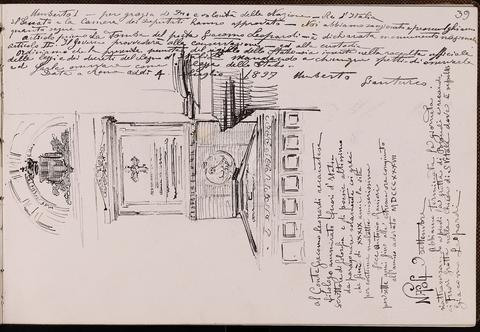 39
Umberto I per grazia di Dio e volontà della nazione – Re d'Italia
il Senato e la Camera dei deputati hanno approvato – Noi abbiamo sanzionato e promulghiamo
quanto segue
Articolo primo La Tomba del poeta Giacomo Leopardi è dichiarata monumento nazionale
articolo II. Il governo provvederà alla conservazione ed alla custodia
Ordiniamo che la presente munita del sigillo dello Stato sia inserta nella raccolta ufficiale
delle leggi e dei decreti del Regno d'Italia mandando a chiunque spetti di osservarla
e di farla osservare come legge dello Stato.
Data a Roma addì 4 luglio 1897 Umberto
al Conte Giacomo Leopardi recanatese
filologo ammirato fuori d'Italia
scrittore di filosofia e di poesie altissimo
da paragonare solamente coi greci
che finì di XXXIX anni la vita
per continue malattie miserissima
fece Antonio Ranieri
per sette anni fino alla estrema ora congiunto
all'amico adorato MDCCCXXXVII
Napoli 9 settembre
Giacomo Leopardi